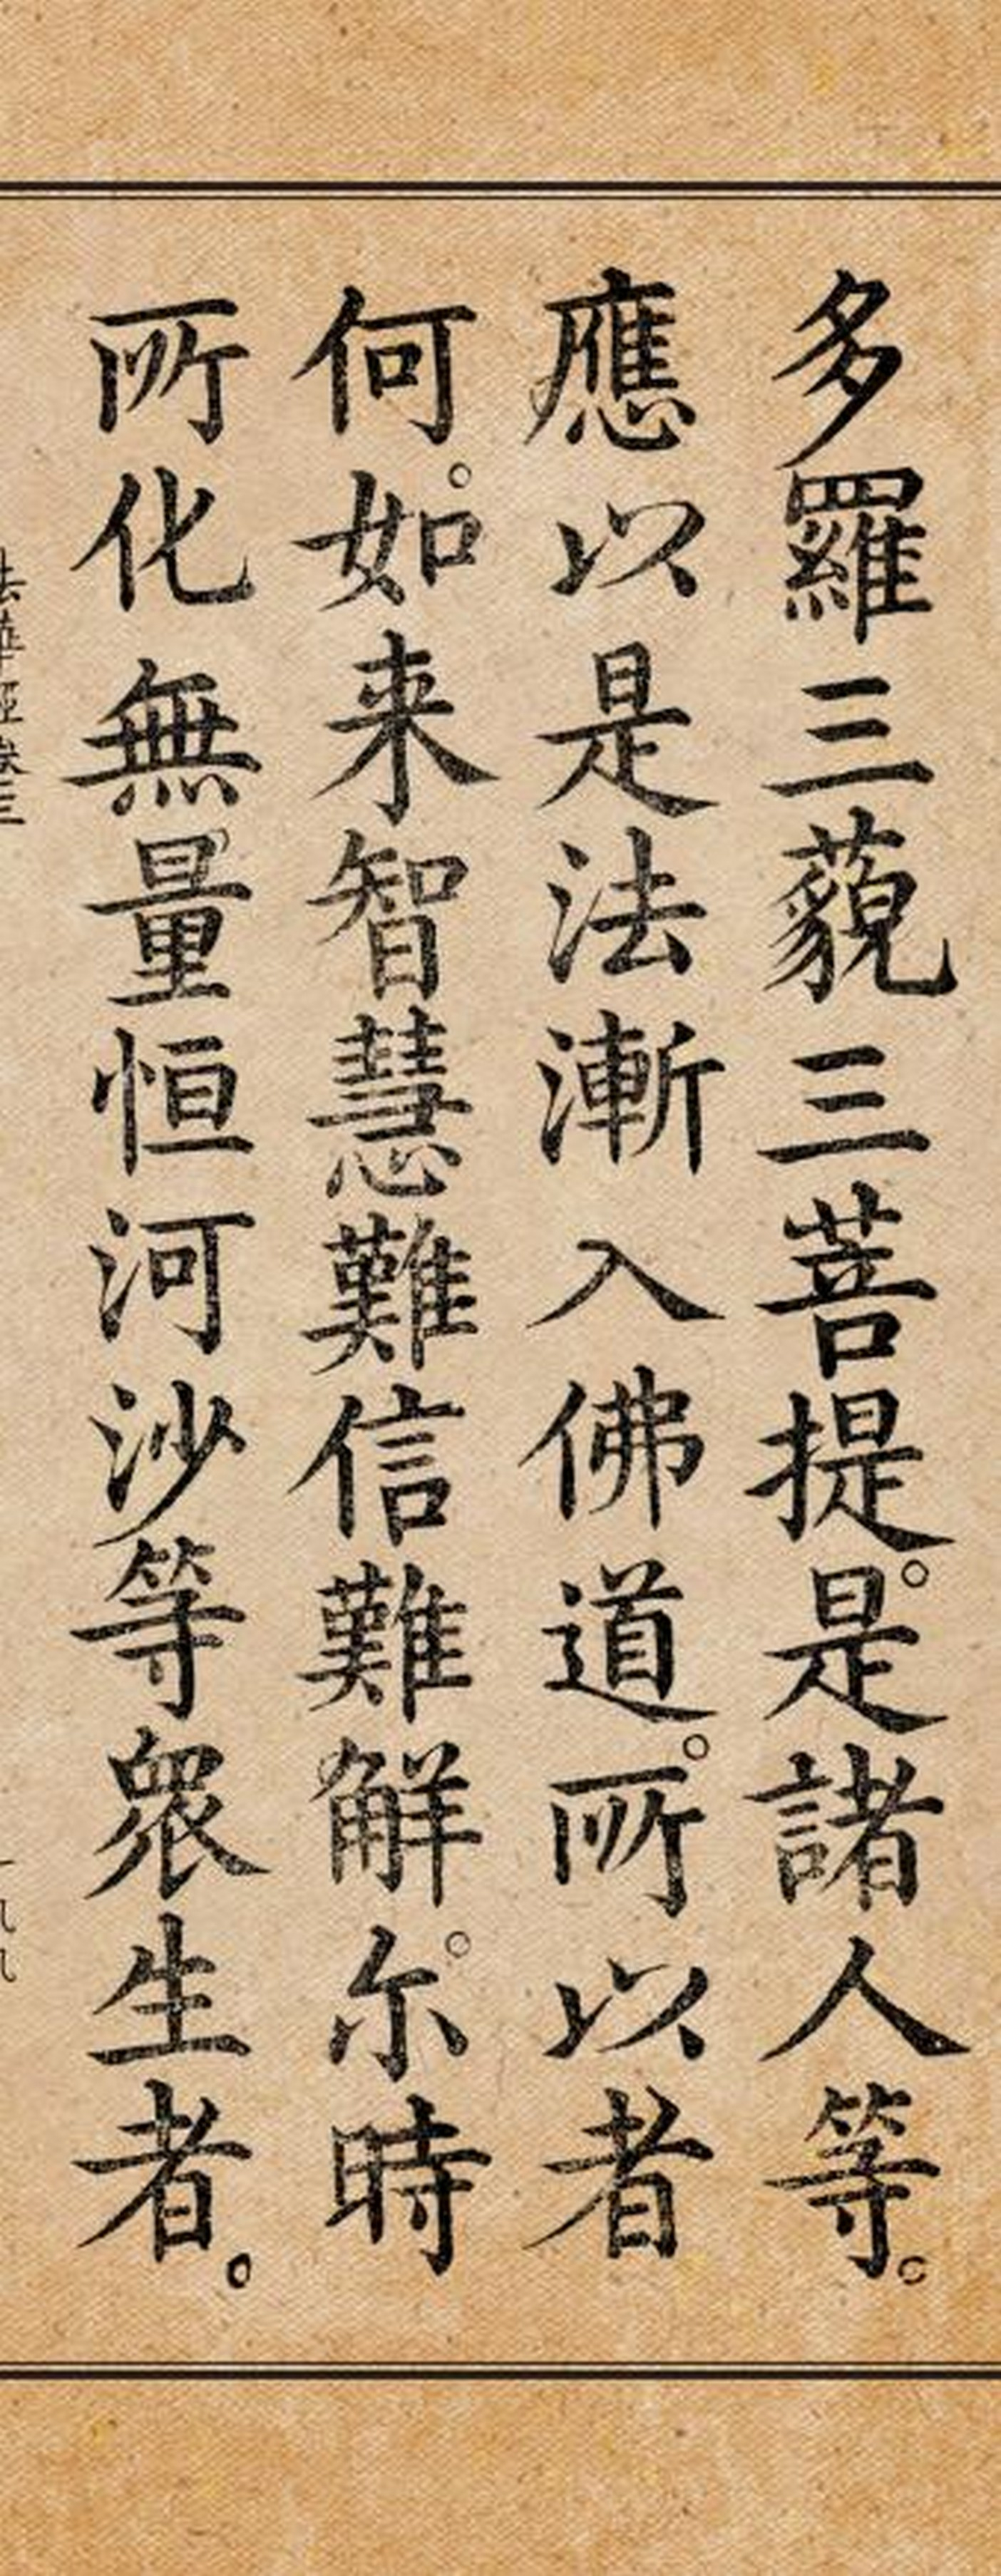 多羅三藐三菩提。是諸人等。
應以是法漸入佛道。所以者
何。如来智慧難信難解。尔時
所化無量恒河沙等衆生者。
法華經卷三